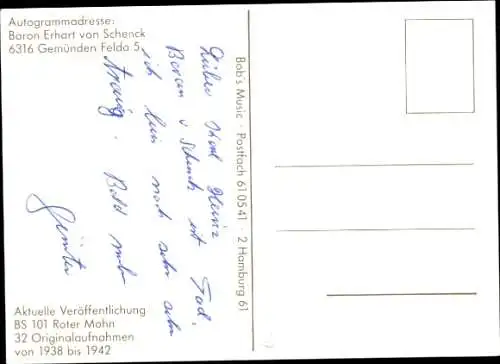 Autogrammadresse:
Baron Erhart von Schenck
6316 Gemünden Felda 5
Lieber Karl Heinz
Baron v Schenk ist Tod.
ich bin noch sehr sehr
traurig. Bald mehr
Günter
Aktuelle Veröffentlichung
BS 101 Roter Mohn
32 Originalaufnahmen
von 1938 bis 1942
Bob's Music · Postfach 61 05 41 · 2 Hamburg 61